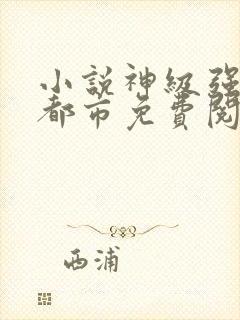 小説神級强
都市免費閱
西浦